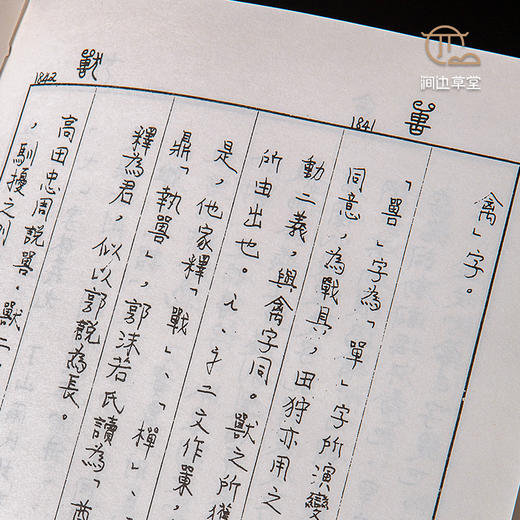 涧边草堂
1841
禽」字。
「嘼」字為「單」字所演變
同意，為戰具，田狩亦用之
動二義，與禽字同。獸之所獲
所由出也。二文作
是，他家釋「戰」、「樿」、
鼎「執嘼」，郭沫若氏讀為「酋
釋為君，似以郭說為長。
1842
高田忠周說嘼、獸二
，馴擾之則